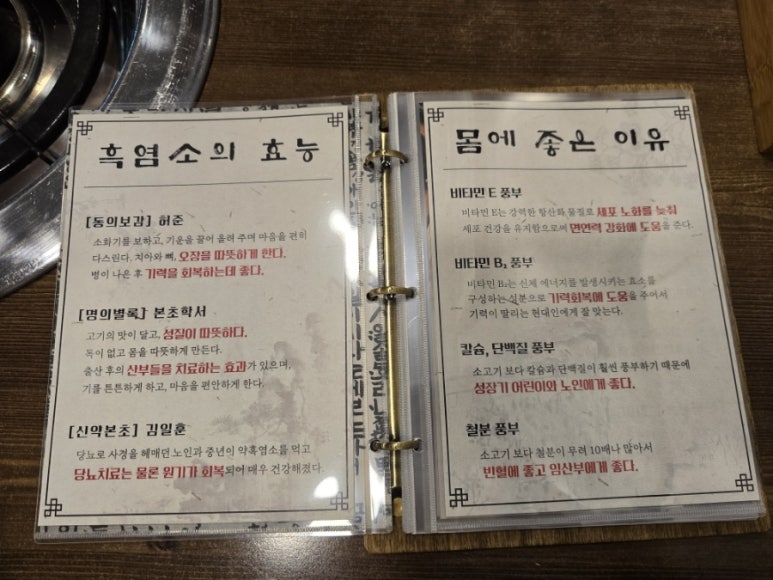 흑염소의 효능
[동의보감] 허준
소화기를 보하고, 기운을 끌어 올려 주며 마음을 편히
다스린다. 치아와 뼈, 오장을 따뜻하게 한다.
병이 나은 후 기력을 회복하는데 좋다.
[명의별록] 본초학서
고기의 맛이 달고, 성질이 따뜻하다.
독이 없고 몸을 따뜻하게 만든다.
출산 후의 산부들을 치료하는 효과가 있으며,
기를 튼튼하게 하고, 마음을 편안하게 한다.
[신약본초] 김일훈
당뇨로 사경을 헤매던 노인과 중년이 약흑염소를 먹고
당뇨치료는 물론 원기가 회복되어 매우 건강해졌다.
몸에 좋은 이유
비타민 E 풍부
비타민 E는 강력한 항산화 물질로 세포 노화를 늦춰
세포 건강을 유지함으로써 면연력 강화에 도움을 준다.
비타민 B₁ 풍부
비타민 B₁는 신체 에너지를 발생시키는 효소를
구성하는 성분으로 기력회복에 도움을 주어서
기력이 딸리는 현대인에게 잘 맞는다.
칼슘, 단백질 풍부
소고기 보다 칼슘과 단백질이 훨씬 풍부하기 때문에
성장기 어린이와 노인에게 좋다.
철분 풍부
소고기 보다 철분이 무려 10배나 많아서
빈혈에 좋고 임산부에게 좋다.